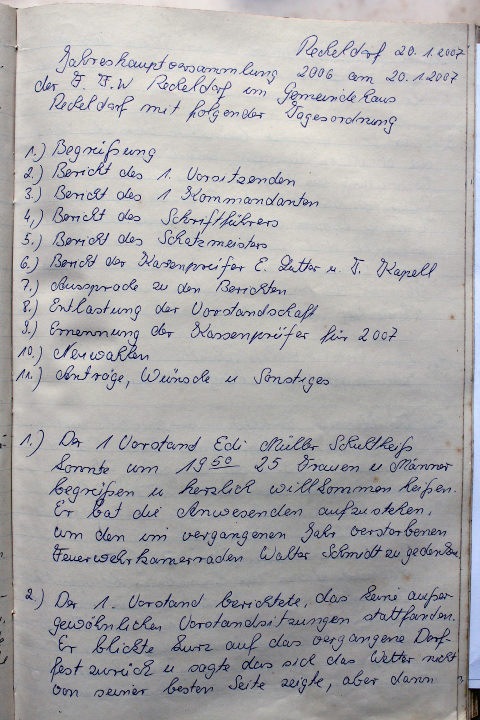 Reckeldorf 20.1.2007
Jahreshauptversammlung 2006 am 20.1.2007
der F. F. W Reckeldorf im Gemeindehaus
Reckeldorf mit folgender Tagesordnung
1.) Begrüßung
2.) Bericht des 1. Vorsitzenden
3.) Bericht des 1 Kommandanten
4.) Bericht des Schriftführers
5.) Bericht des Schatzmeisters
6.) Bericht der Kassenprüfer E. Lutter u. F. Kapell
7.) Aussprache zu den Berichten
8.) Entlastung der Vorstandschaft
9.) Ernennung der Kassenprüfer für 2007
10.) Neuwahlen
11.) Anträge, Wünsche u Sonstiges
1.) Der 1 Vorstand Edi Müller Schultheiß
konnte um 19 50 25 Frauen u Männer
begrüßen u herzlich willkommen heißen.
Er bat die Anwesenden aufzustehen,
um den im vergangenen Jahr verstorbenen
Feuerwehrkameraden Walter Schmidt zu gedenken
2.) Der 1. Vorstand berichtete, das keine außer-
gewöhnlichen Vorstandsitzungen stattfanden.
Er blickte kurz auf das vergangene Dorf-
fest zurück u sagte das sich das Wetter nicht
von seiner besten Seite zeigte, aber dann